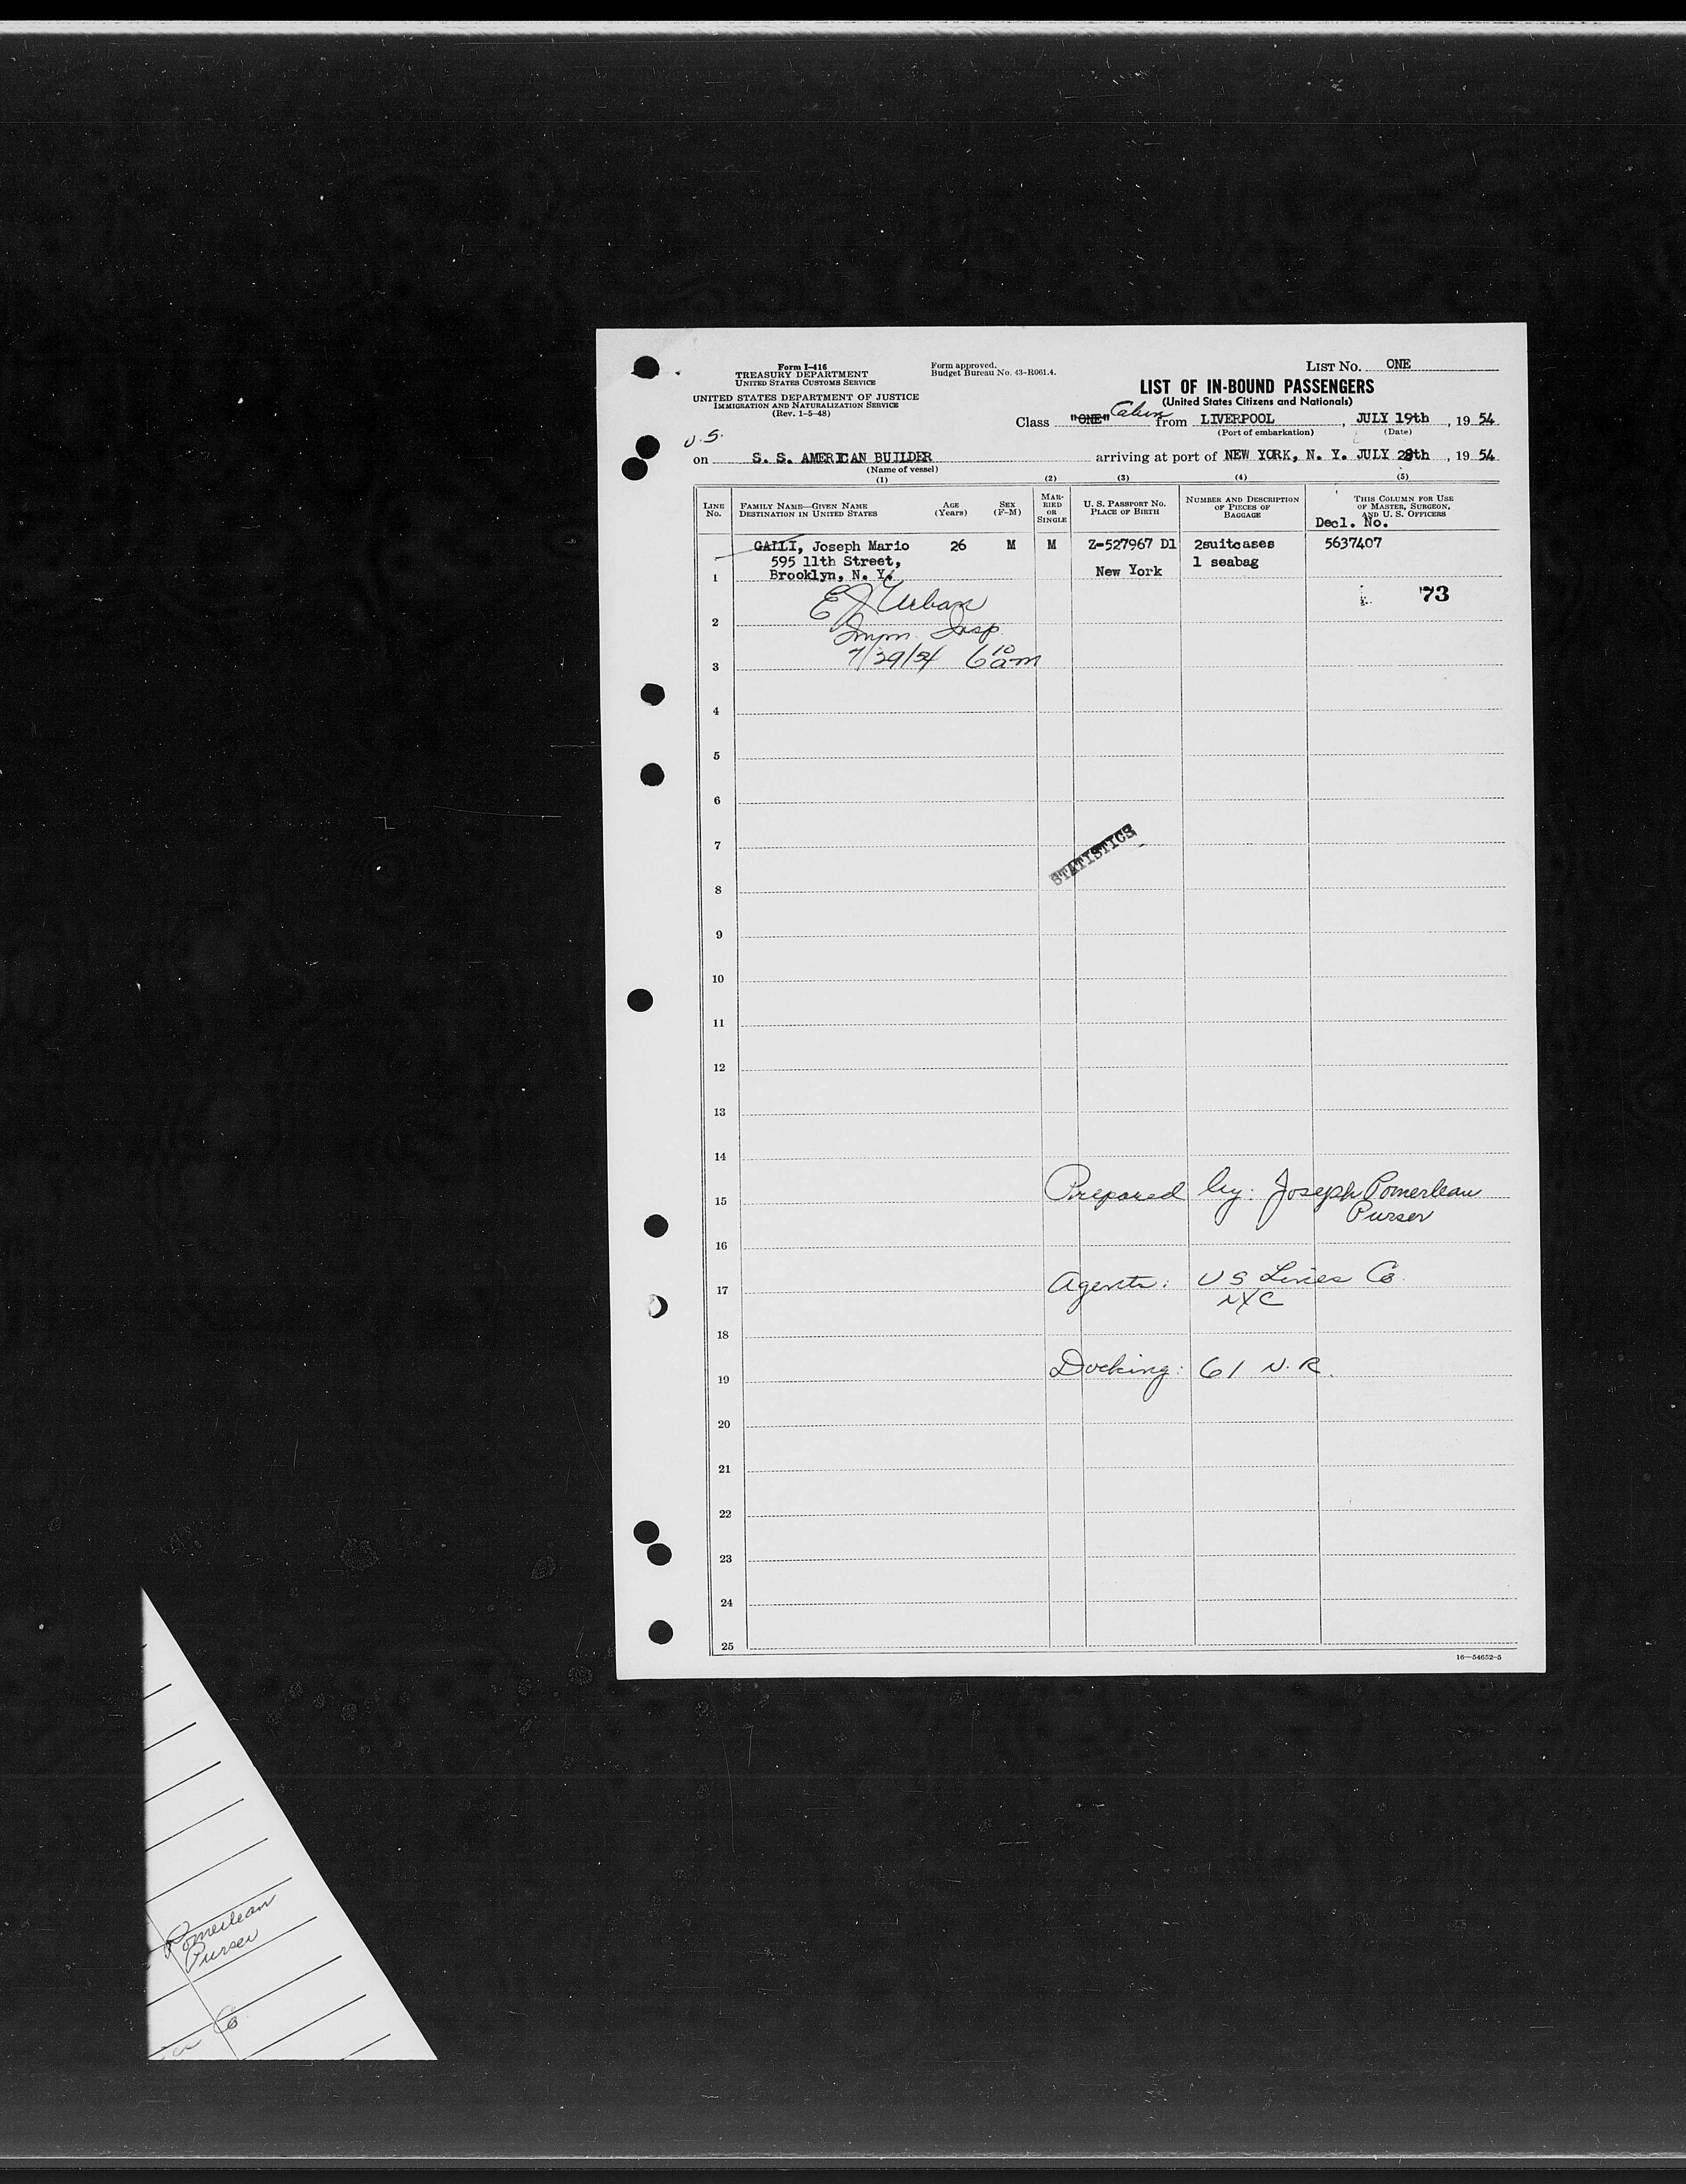 Form I-416
TREASURY DEPARTMENT
UNITED STATES CUSTOMS SERVICE
UNITED STATES DEPARTMENT OF JUSTICE
IMMIGRATION AND NATURALIZATION SERVICE
(Rev. 1-5-48)
Form approved.
Budget Bureau No. 43-R061.4.
LIST NO. ONE
LIST OF IN-BOUND PASSENGERS
(United States Citizens and Nationals)
Class "ONE" Cabin from LIVERPOOL, JULY 19th, 1954
(Port of embarkation) (Date)
U.S.
on S. S. AMERICAN BUILDER arriving at port of NEW YORK, N. Y. JULY 28th, 1954
(Name of vessel)
(1) (2) (3) (4) (5)
LINE NO. FAMILY NAME—GIVEN NAME DESTINATION IN UNITED STATES AGE (Years) SEX (F-M) MARRIED OR SINGLE U. S. PASSPORT NO. PLACE OF BIRTH NUMBER AND DESCRIPTION OF PIECES OF BAGGAGE THIS COLUMN FOR USE OF MASTER, SURGEON, AND U. S. OFFICERS
Decl. No.
GALLI, Joseph Mario 26 M M Z-527967 D1 2suitcases 5637407
595 11th Street, 1 seabag
1 Brooklyn, N. Y. New York
73
E J Urban
2
Imm. Insp.
3 7/29/54 6 10 am
4
5
6
7
STATISTICS
8
9
10
11
12
13
14
15 Prepared by: Joseph Pomerleau
Purser
16
17 Agents: US Lines Co.
NYC
18
19 Docking: 61 N. R.
20
21
22
23
24
25
16—54652-5
Pomerleau
Purser
Co